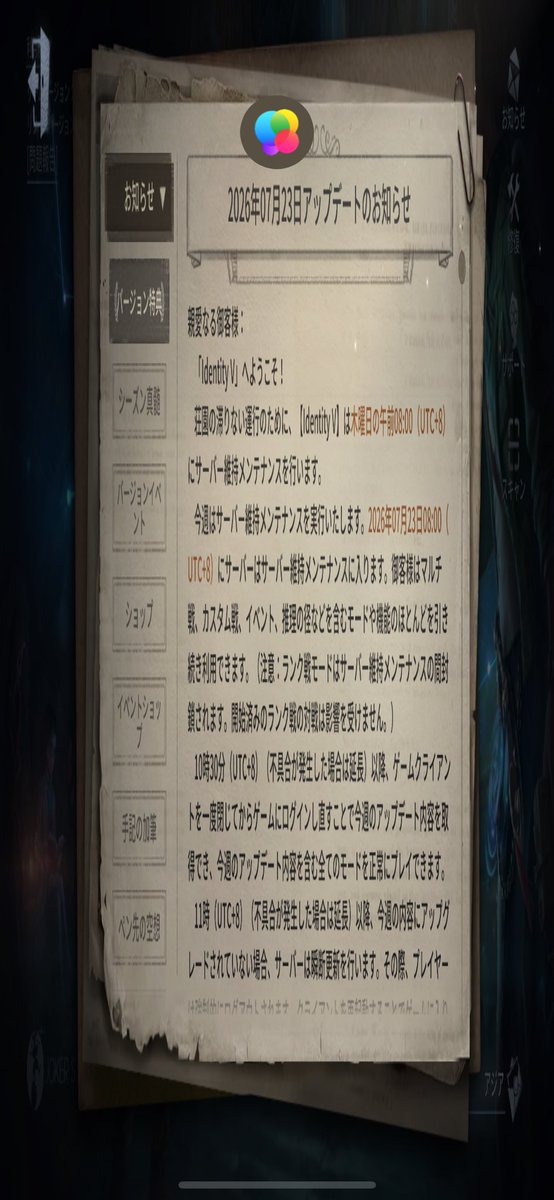 2026年07月23日アップデートのお知らせ
お知らせ ▼
バージョン特典
シーズン真髄
バージョンイベ
ント
ショップ
イベントショッ
プ
手記の加筆
ペン先の空想
親愛なる御客様：
「Identity V」へようこそ！
荘園の滞りない運行のために、【Identity V】は木曜日の午前08:00（UTC+8）
にサーバー維持メンテナンスを行います。
今週はサーバー維持メンテナンスを実行いたします。2026年07月23日08:00（
UTC+8）にサーバーはサーバー維持メンテナンスに入ります。御客様はマルチ
戦、カスタム戦、イベント、推理の径などを含むモードや機能のほとんどを引き
続き利用できます。（注意：ランク戦モードはサーバー維持メンテナンスの間封
鎖されます。開始済みのランク戦の対戦は影響を受けません。）
10時30分（UTC+8）（不具合が発生した場合は延長）以降、ゲームクライアン
トを一度閉じてからゲームにログインし直すことで今週のアップデート内容を取
得でき、今週のアップデート内容を含む全てのモードを正常にプレイできます。
11時（UTC+8）（不具合が発生した場合は延長）以降、今週の内容にアップグ
レードされていない場合、サーバーは瞬断更新を行います。その際、プレイヤー
お知らせ
修復
スキャン
アジア
問題報告